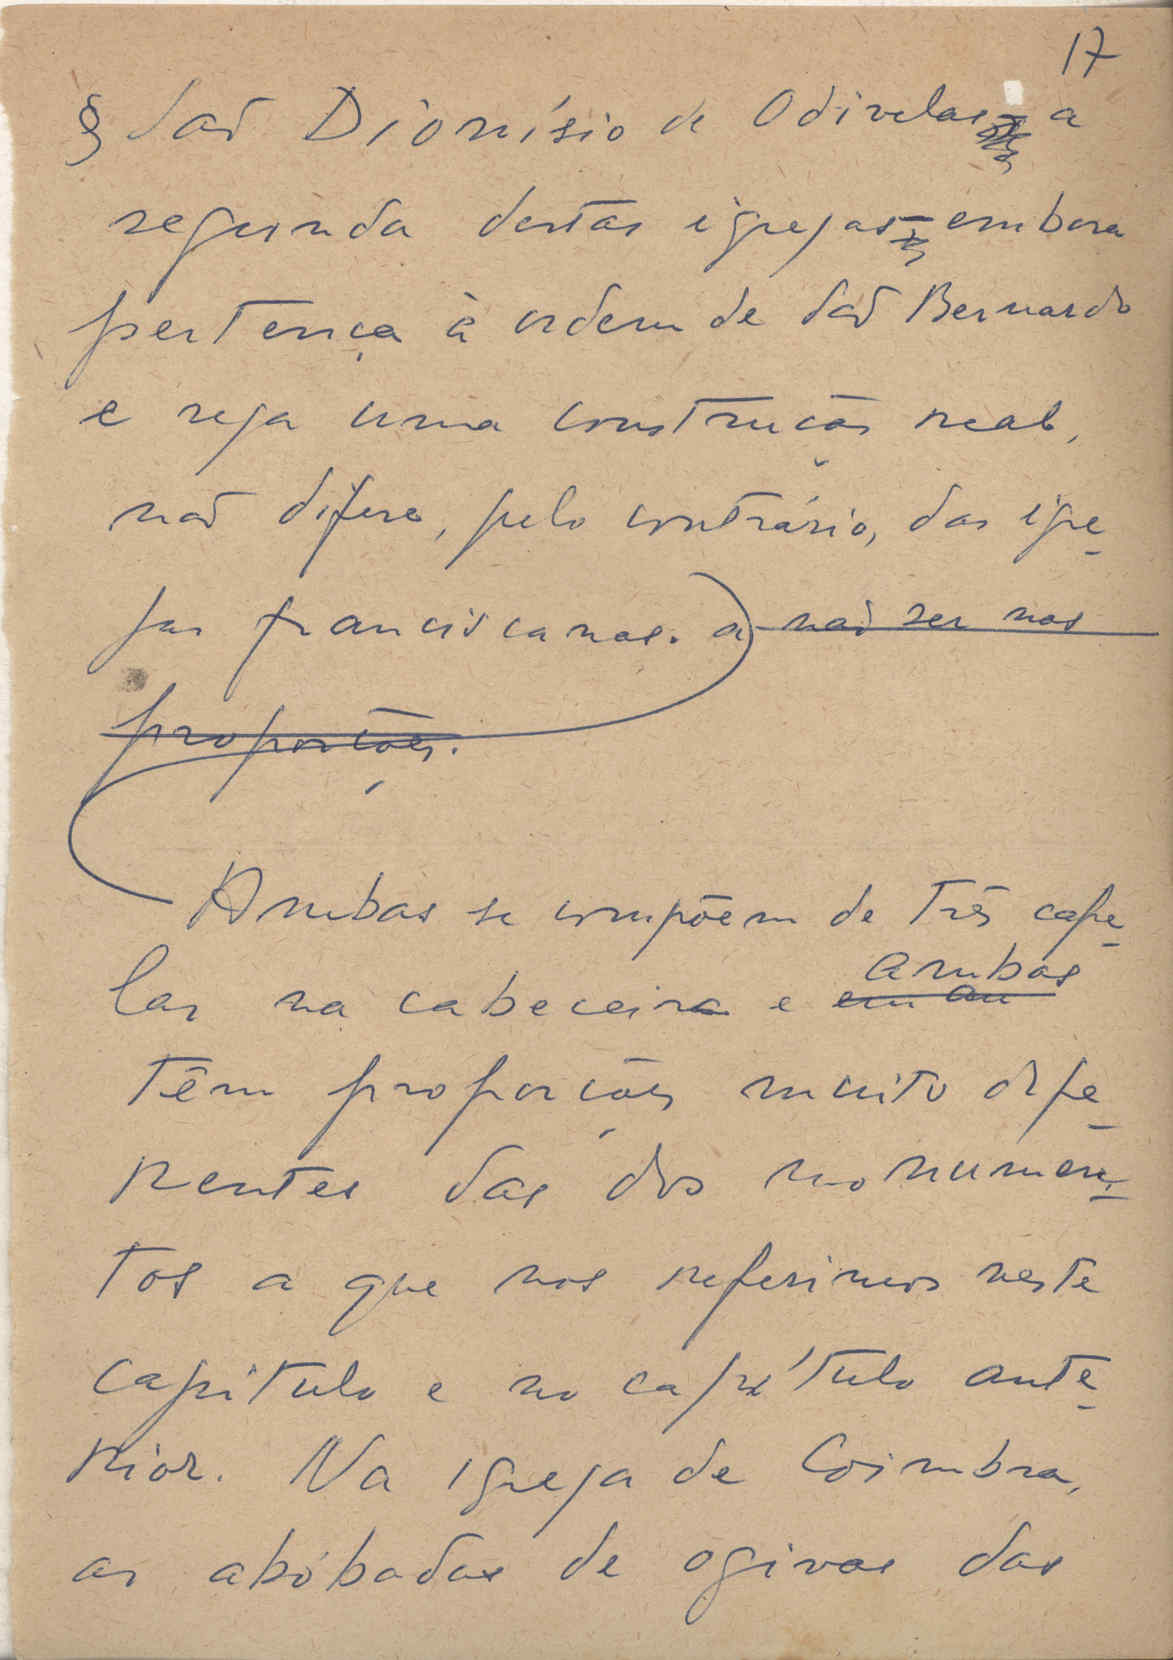 17
§ São Dionísio de Odivelas, a
segunda destas igrejas, embora
pertença à ordem de São Bernardo
e seja uma construção real,
não difere, pelo contrário, das igre-
jas franciscanas. a não ser nas
proporções.
Ambas se compõem de três cape-
ambas
las na cabeceira e em am
têm proporções muito dife-
rentes das dos monumen-
tos a que nos referimos neste
capítulo e no capítulo ante-
rior. Na igreja de Coimbra,
as abóbadas de ogivas das